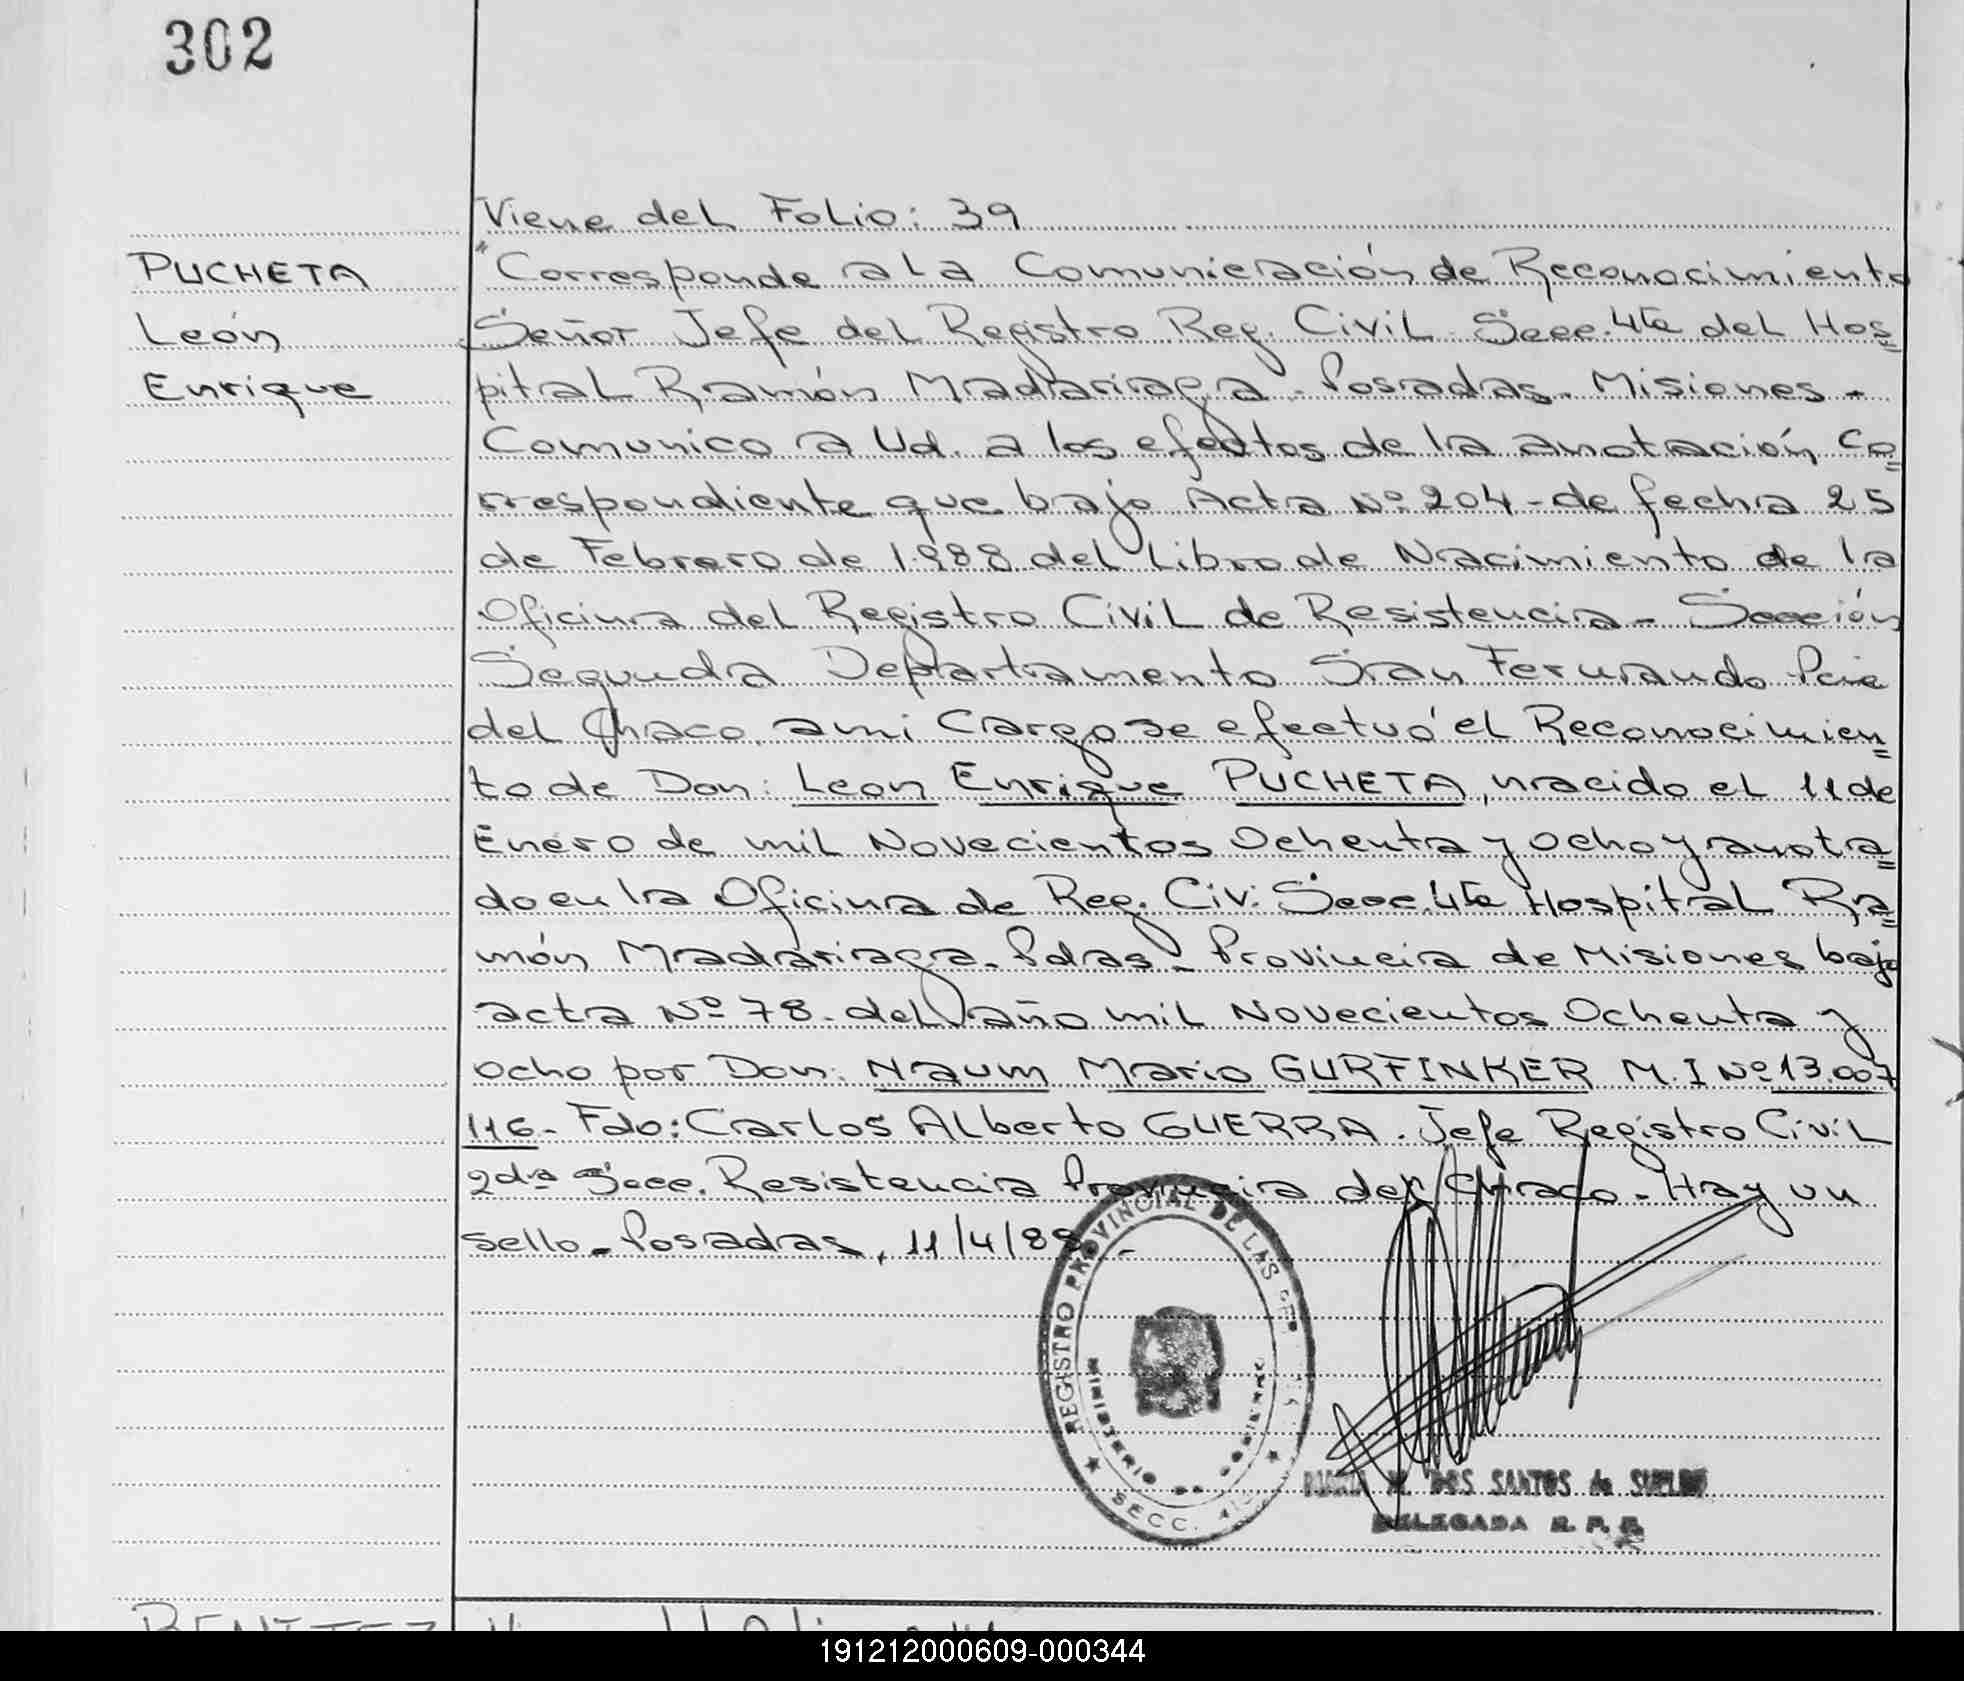 302
Viene del Folio: 39
PUCHETA
León
Enrique
"Corresponde a la Comunicación de Reconocimiento
Señor Jefe del Registro Reg. Civil Secc. 4ta del Hos=
pital Ramón Madariaga - Posadas. Misiones -
Comunico a Ud. a los efectos de la anotación Co=
rrespondiente que bajo Acta Nº 204 - de fecha 25
de Febrero de 1.988 del Libro de Nacimiento de la
Oficina del Registro Civil de Resistencia - Sección
Segunda Departamento San Fernando Pcia
del Chaco, a mi Cargo se efectuó el Reconocimien=
to de Don: Leon Enrique PUCHETA, nacido el 11 de
Enero de mil Novecientos Ochenta y ocho y anota=
do en la Oficina de Reg. Civ: Secc. 4ta Hospital Ra=
món Madariaga. Pdas - Provincia de Misiones bajo
acta Nº 78. del año mil Novecientos Ochenta y
ocho por Don: Naum Mario GURFINKER M.I Nº 13.007
116 - Fdo: Carlos Alberto GUERRA. Jefe Registro Civil
2da Secc. Resistencia Provincia del Chaco - Hay un
sello - Posadas, 11/4/88 -
REGISTRO PROVINCIAL DE LAS
MINISTERIO DE
SECC.
M. DOS SANTOS de
DELEGADA R. P. P.
BENITEZ
191212000609-000344